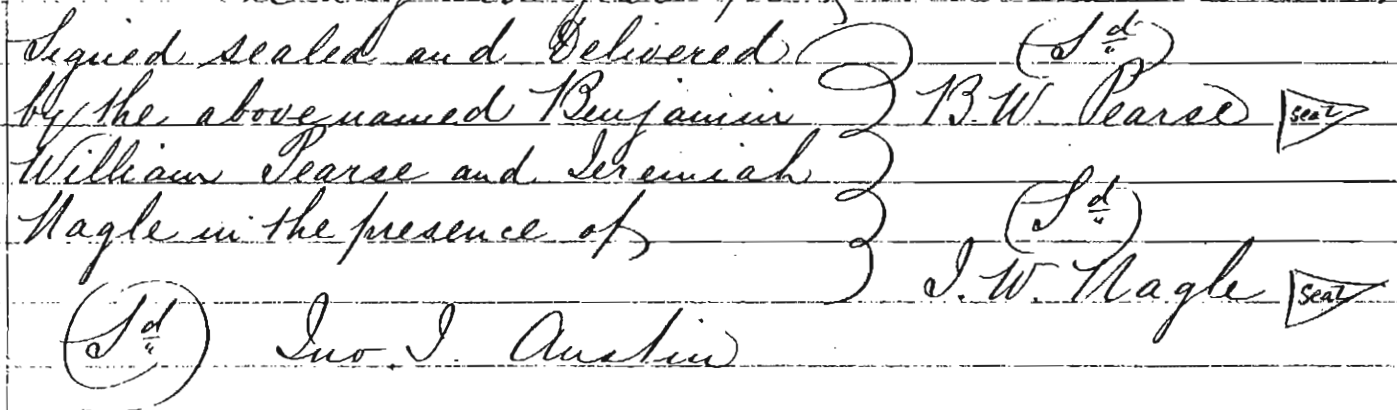 Signed sealed and Delivered
by the above named Benjamin
William Pearse and Jeremiah
Nagle in the presence of
(Sd)
B. W. Pearse seal
(Sd)
J. W. Nagle seal
(Sd) Jno. J. Austin